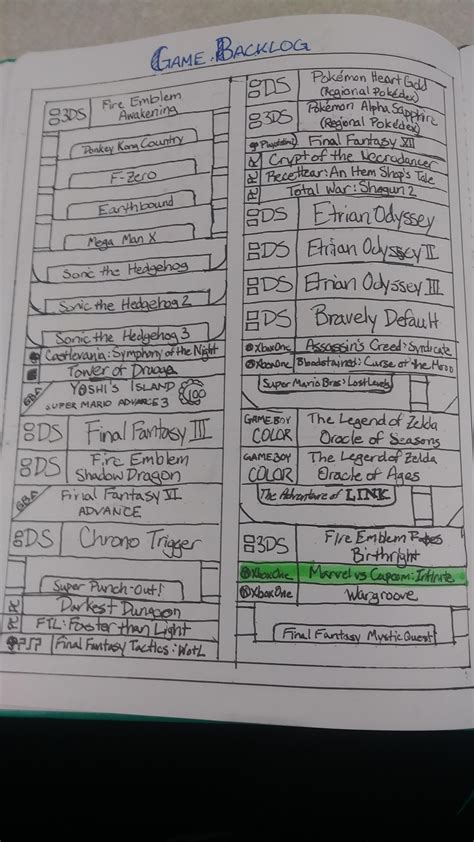 GAME BACKLOG
3DS Fire Emblem
Awakening
Donkey Kong Country
F-Zero
Earthbound
Mega Man X
Sonic the Hedgehog
Sonic the Hedgehog 2
Sonic the Hedgehog 3
Castlevania: Symphony of the Night
Tower of Druaga
GBA YOSHI'S ISLAND 100
SUPER MARIO ADVANCE 3
DS Final Fantasy III
DS Fire Emblem
Shadow Dragon
GBA Final Fantasy VI
ADVANCE
DS Chrono Trigger
Super Punch-Out!
PC Darkest Dungeon
PC FTL: Faster than Light
PSP Final Fantasy Tactics: WotL
DS Pokémon Heart Gold
(Regional Pokédex)
3DS Pokémon Alpha Sapphire
(Regional Pokédex)
Final Fantasy VII
PC Crypt of the Necrodancer
PC Recettear: An Item Shop's Tale
PC Total War: Shogun 2
DS Etrian Odyssey
DS Etrian Odyssey II
DS Etrian Odyssey III
DS Bravely Default
XboxOne Assassin's Creed: Syndicate
XboxOne Bloodstained: Curse of the Moon
Super Mario Bros: Lost Levels
GAME BOY The Legend of Zelda
COLOR Oracle of Seasons
GAME BOY The Legend of Zelda
COLOR Oracle of Ages
The Adventure of LINK
3DS Fire Emblem
Birthright
XboxOne Marvel vs Capcom: Infinite
XboxOne Wargroove
Final Fantasy Mystic Quest